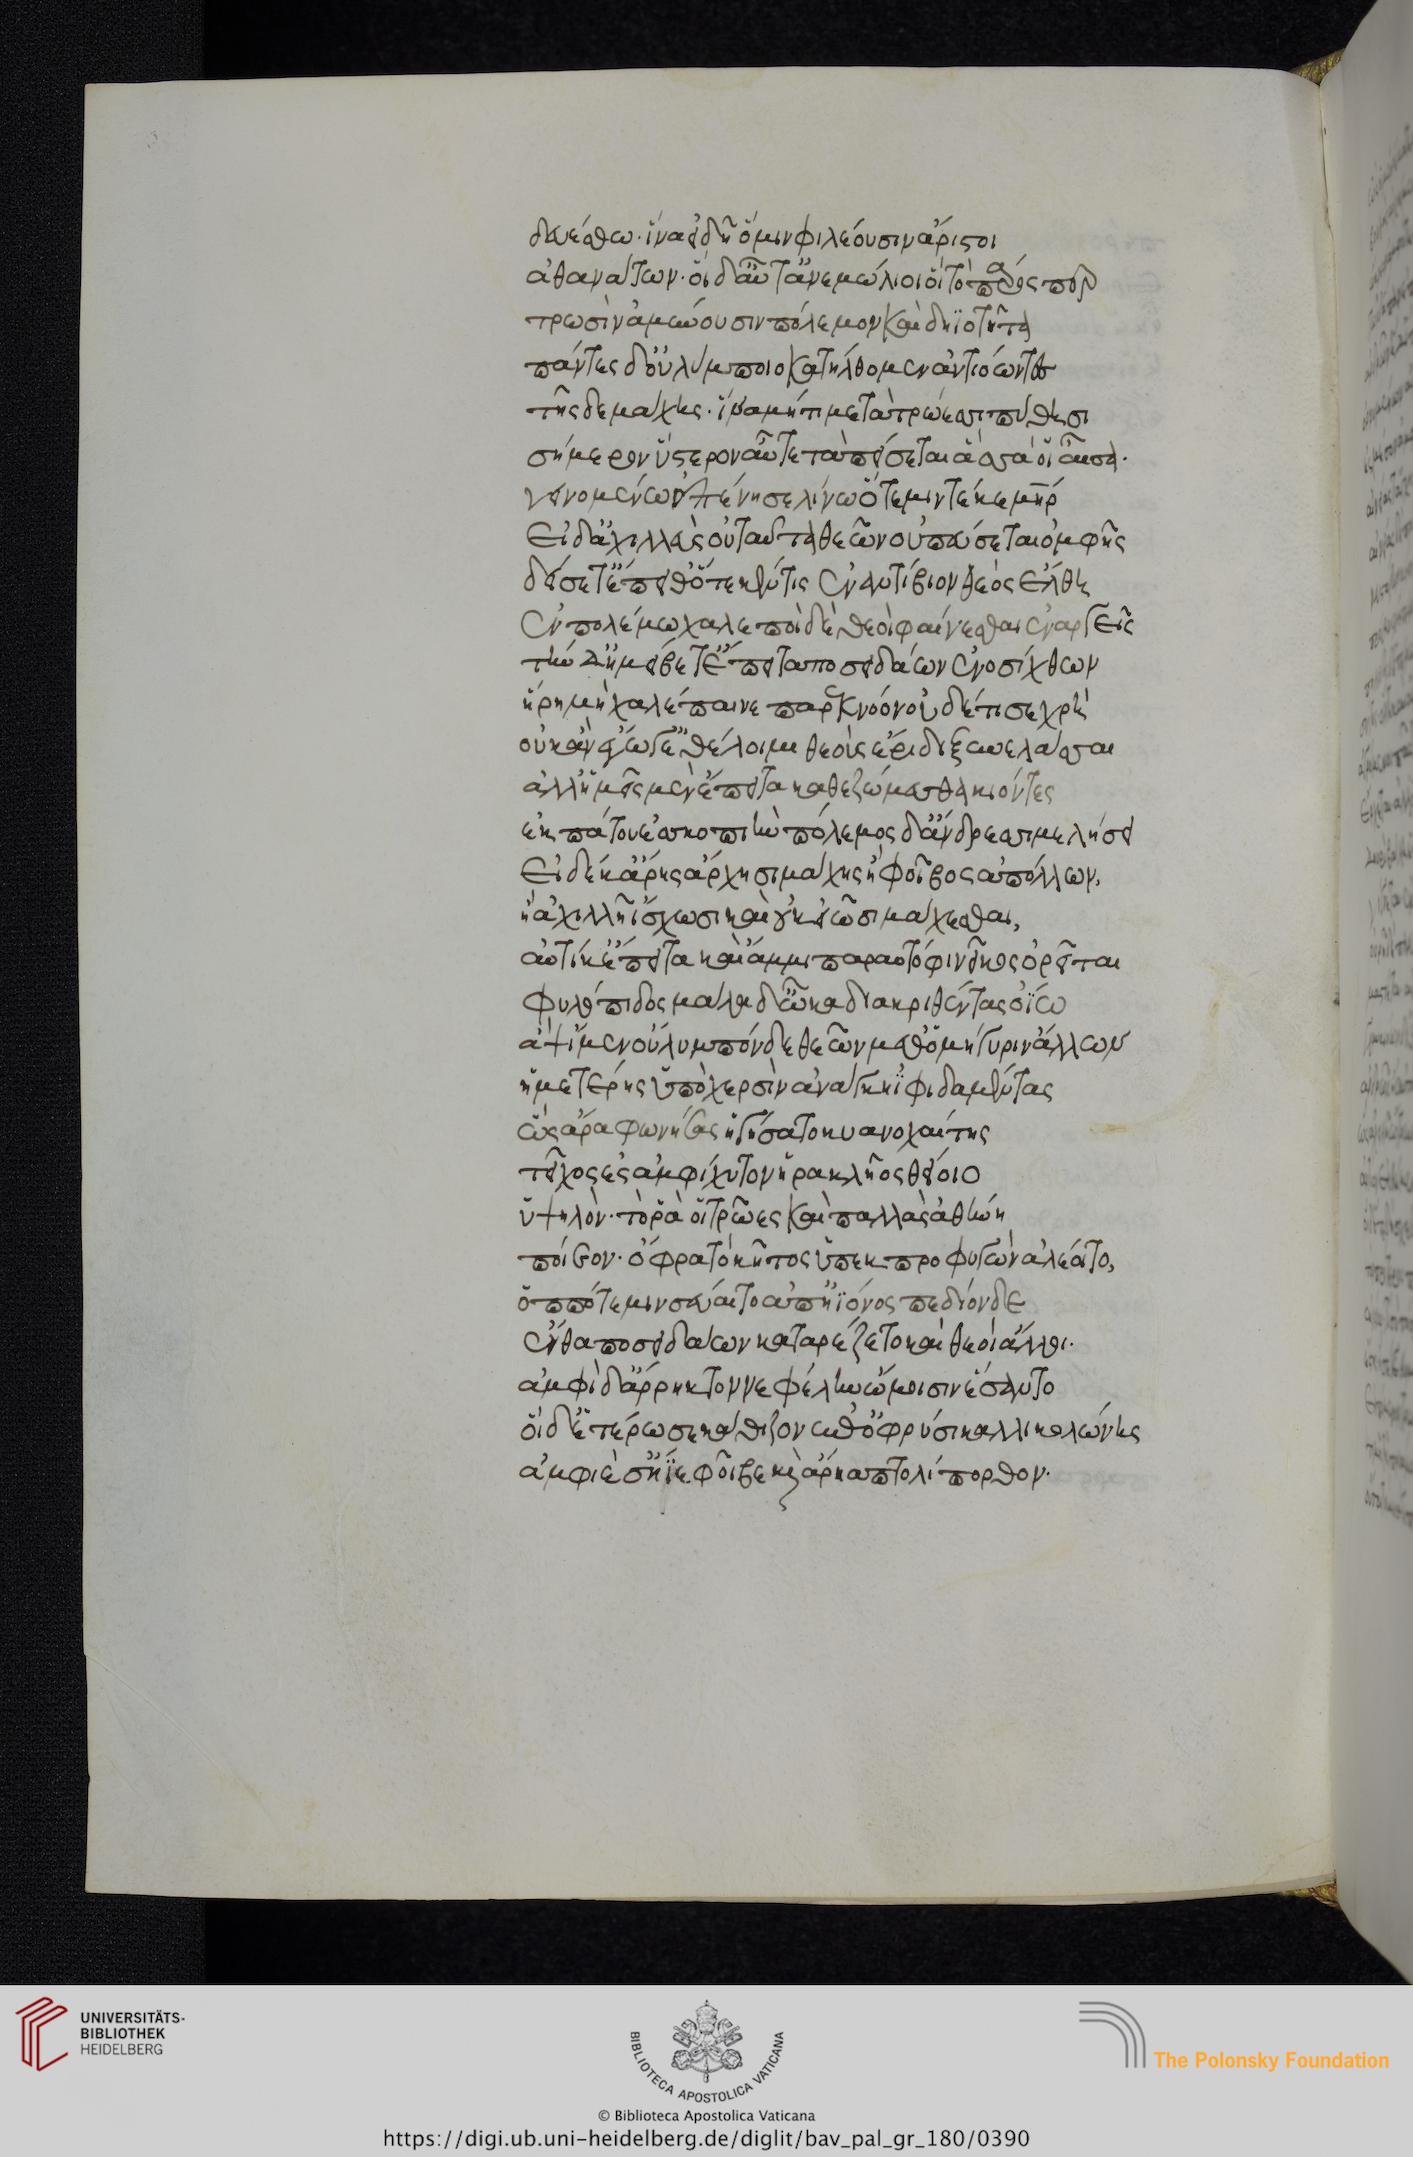 δευέσθω· ἵνα εἰδῆ ὅ μιν φιλέουσιν ἄριστοι
ἀθανάτων· οἱ δ' αὖτ' ἀνεμώλιοι οἳ τὸ πάρος περ
τρωσὶν ἀμύνουσιν πόλεμον καὶ δηϊοτῆτα
πάντες δ' οὐλύμποιο κατήλθομεν ἀντιόωντες
τῆσδε μάχης· ἵνα μή τι μετὰ τρώεσσι πάθησι
σήμερον ὕστερον αὖτε τὰ πείσεται ἅσσα οἱ αἶσα·
γεινομένω ἐπένησε λίνω ὅτε μιν τέκε μήτηρ
Εἰ δ' ἀχιλλεὺς οὐ ταῦτα θεῶν οὐ πεύσεται ὀμφῆς
δείσετ' ἔπειθ' ὅτε κέν τις ἐναντίβιον θεὸς ἔλθη
ἐν πολέμω χαλεποὶ δὲ θεοὶ φαίνεσθαι ἐναργεῖς
τὴν δ' ἠμείβετ' ἔπειτα ποσειδάων ἐνοσίχθων
ἥρη μὴ χαλέπαινε παρ' ἐκ νόον οὐδέ τί σε χρή
οὐκ ἂν ἔγωγ' ἐθέλοιμι θεοὺς ἔριδι ξυνελάσσαι
ἀλλ' ἡμεῖς μὲν ἔπειτα καθεζώμεσθα κιόντες
ἐκ πάτου ἐς σκοπιὴν πόλεμος δ' ἄνδρεσσι μελήσει
Εἰ δέ κ' ἄρης ἄρχησι μάχης ἢ φοῖβος ἀπόλλων,
ἢ ἀχιλλῆ' ἴσχωσι καὶ οὐκ εἰῶσι μάχεσθαι,
αὐτίκ' ἔπειτα καὶ ἄμμι παρ' αὐτόφιν νεῖκος ὀρεῖται
φυλόπιδος μάλα δ' ὦκα διακριθέντας ὀΐω
ἂψ ἴμεν οὔλυμπόνδε θεῶν μεθ' ὁμήγυριν ἄλλων
ἡμετέρης ὑπὸ χερσὶν ἀνάγκη ἶφι δαμέντας
ὣς ἄρα φωνήσας ἡγήσατο κυανοχαίτης
τεῖχος ἐς ἀμφίχυτον ἡρακλῆος θείοιο
ὑψηλὸν· τό ῥα οἱ τρῶες καὶ παλλὰς ἀθήνη
ποίεον· ὄφρα τὸ κῆτος ὑπεκπροφυγὼν ἀλέαιτο,
ὁππότε μιν σεύαιτο ἀπ' ἠϊόνος πεδίονδε
ἔνθα ποσειδάων κατ' ἄρ' ἕζετο καὶ θεοὶ ἄλλοι·
ἀμφὶ δ' ἄρρηκτον νεφέλην ὤμοισιν ἕσαντο
οἱ δ' ἑτέρωσε κάθιζον ἐπ' ὀφρύσι καλλικολώνης
ἀμφὶ σὲ ἤϊε φοῖβε καὶ ἄρηα πτολίπορθον·
UNIVERSITÄTS-
BIBLIOTHEK
HEIDELBERG
BIBLIOTECA APOSTOLICA VATICANA
The Polonsky Foundation
© Biblioteca Apostolica Vaticana
https://digi.ub.uni-heidelberg.de/diglit/bav_pal_gr_180/0390